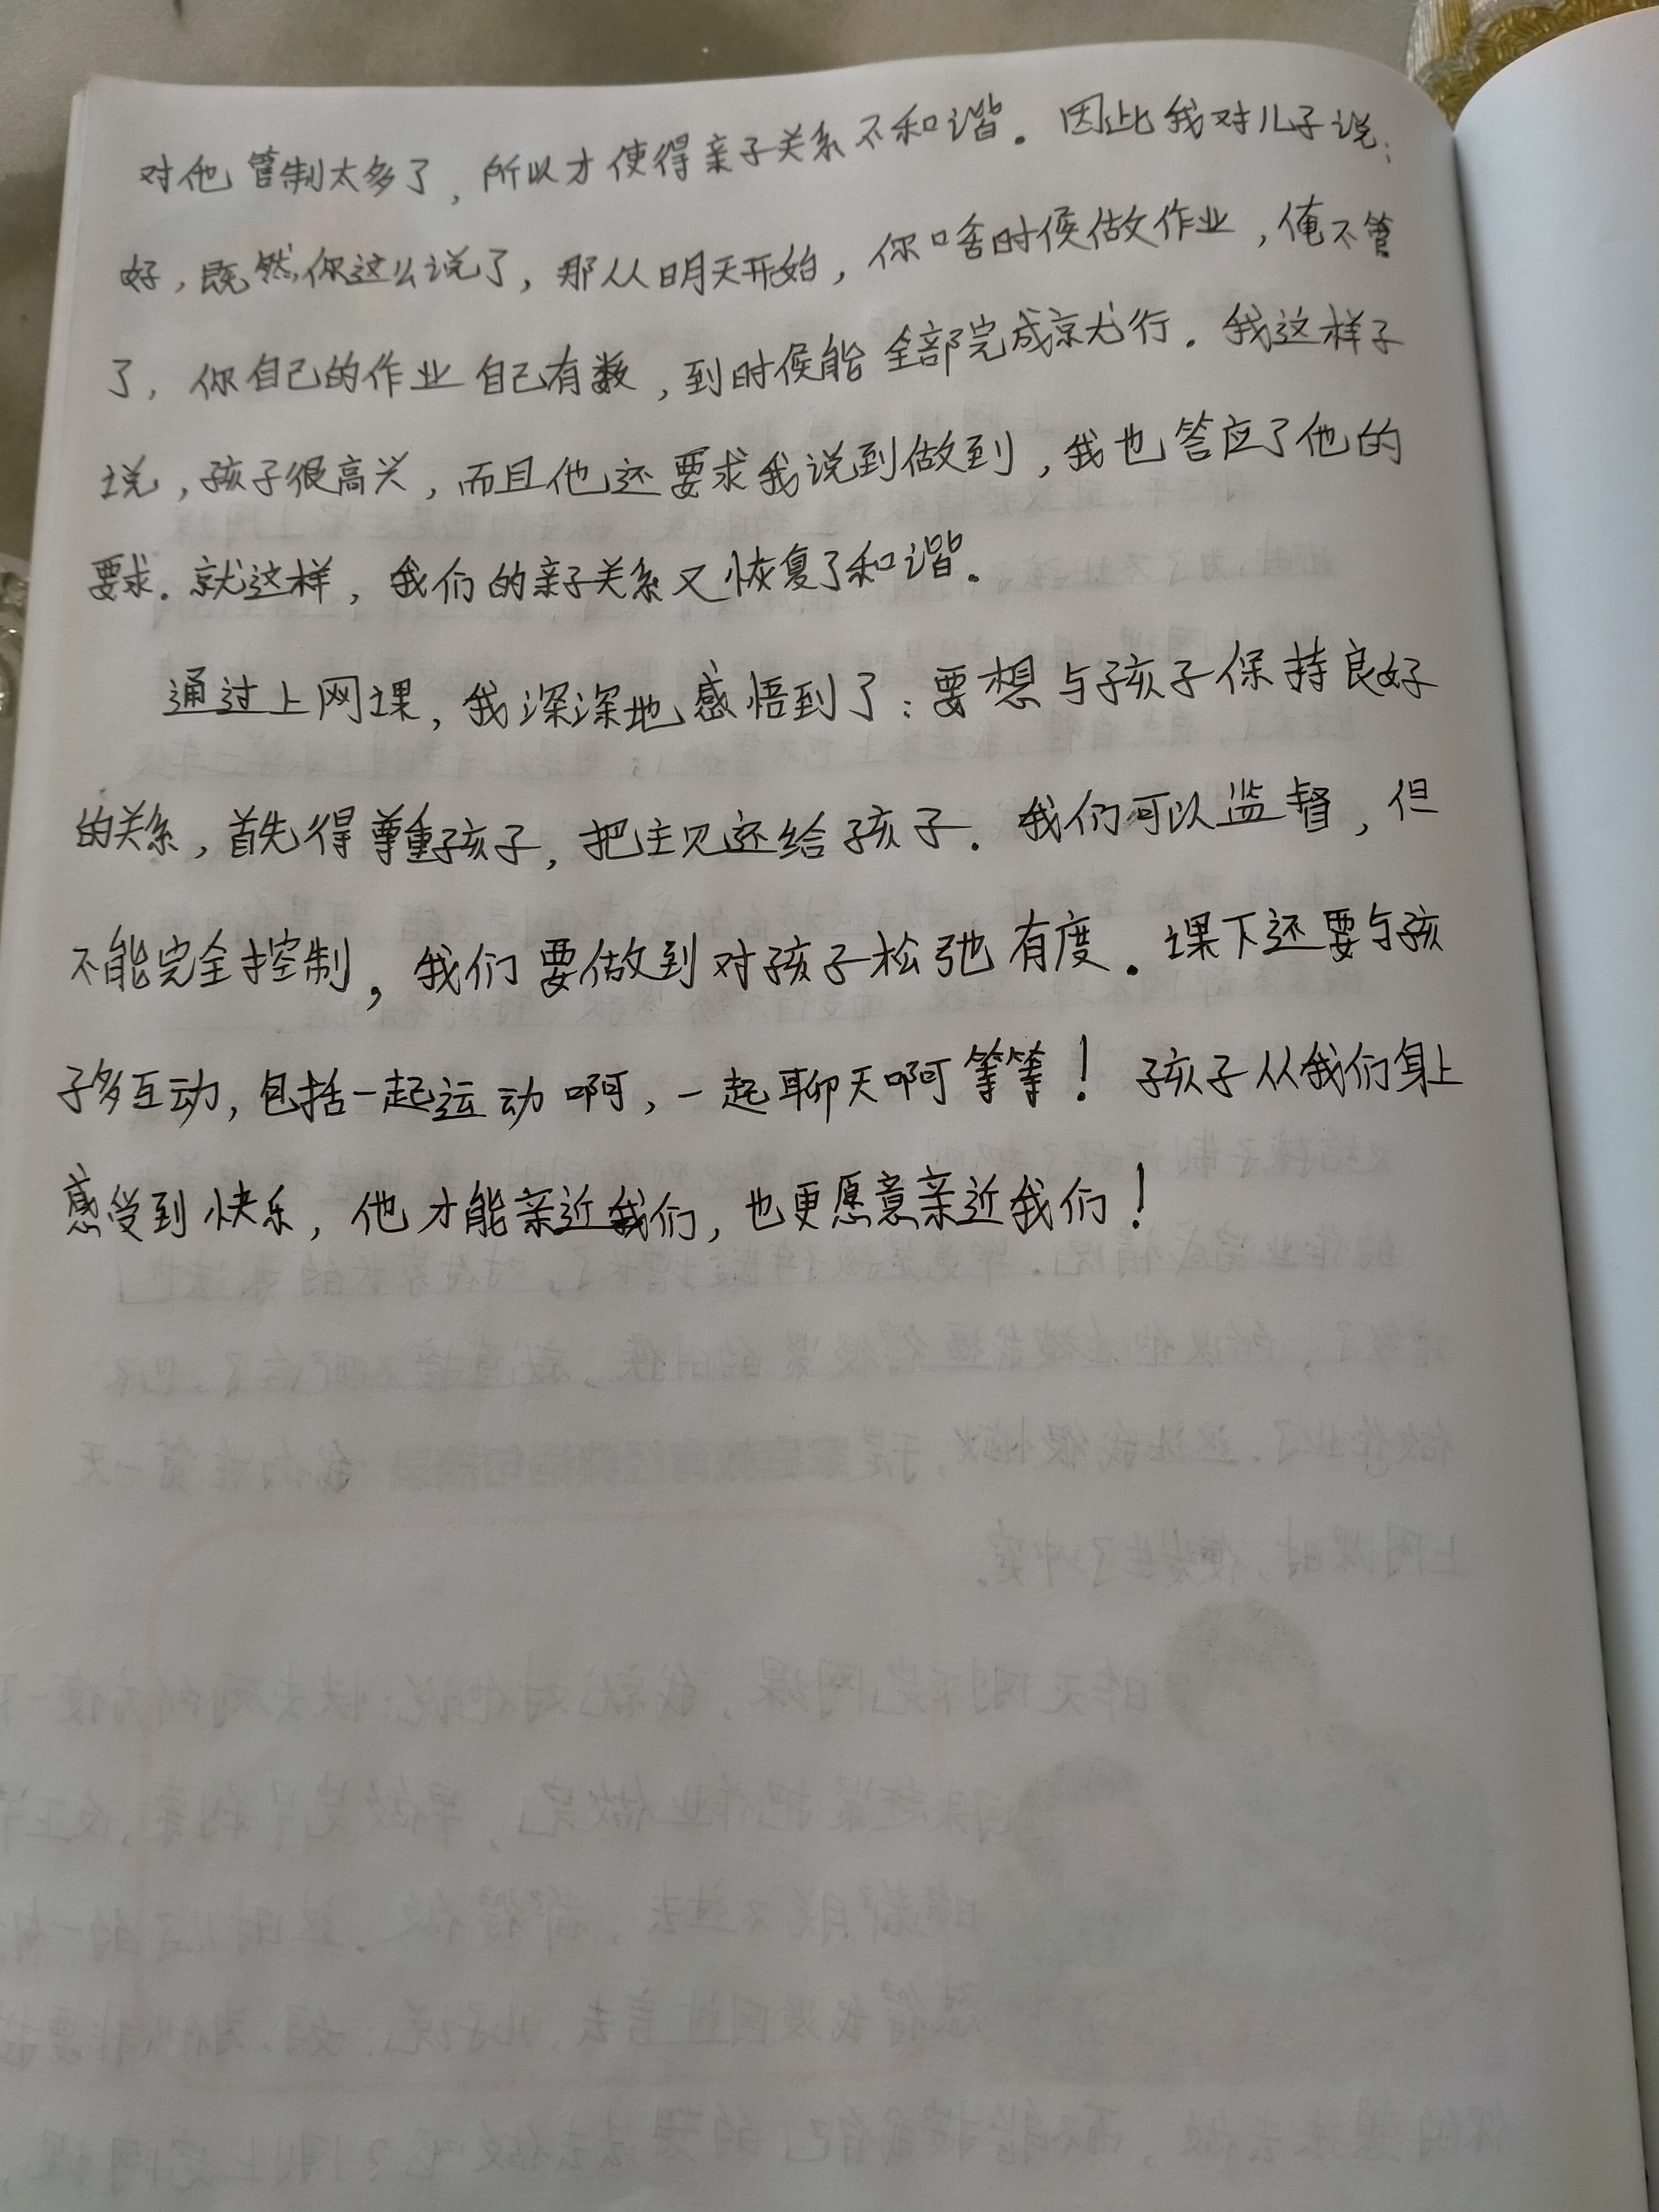 对他管制太多了，所以才使得亲子关系不和谐。因此我对儿子说：
好，既然你这么说了，那从明天开始，你啥时候做作业，俺不管
了，你自己的作业自己有数，到时候能全部完成就行。我这样子
说，孩子很高兴，而且他还要求我说到做到，我也答应了他的
要求。就这样，我们的亲子关系又恢复了和谐。
通过上网课，我深深地感悟到了：要想与孩子保持良好
的关系，首先得尊重孩子，把主见还给孩子。我们可以监督，但
不能完全控制，我们要做到对孩子松弛有度。课下还要与孩
子多互动，包括一起运动啊，一起聊天啊等等！孩子从我们身上
感受到快乐，他才能亲近我们，也更愿意亲近我们！